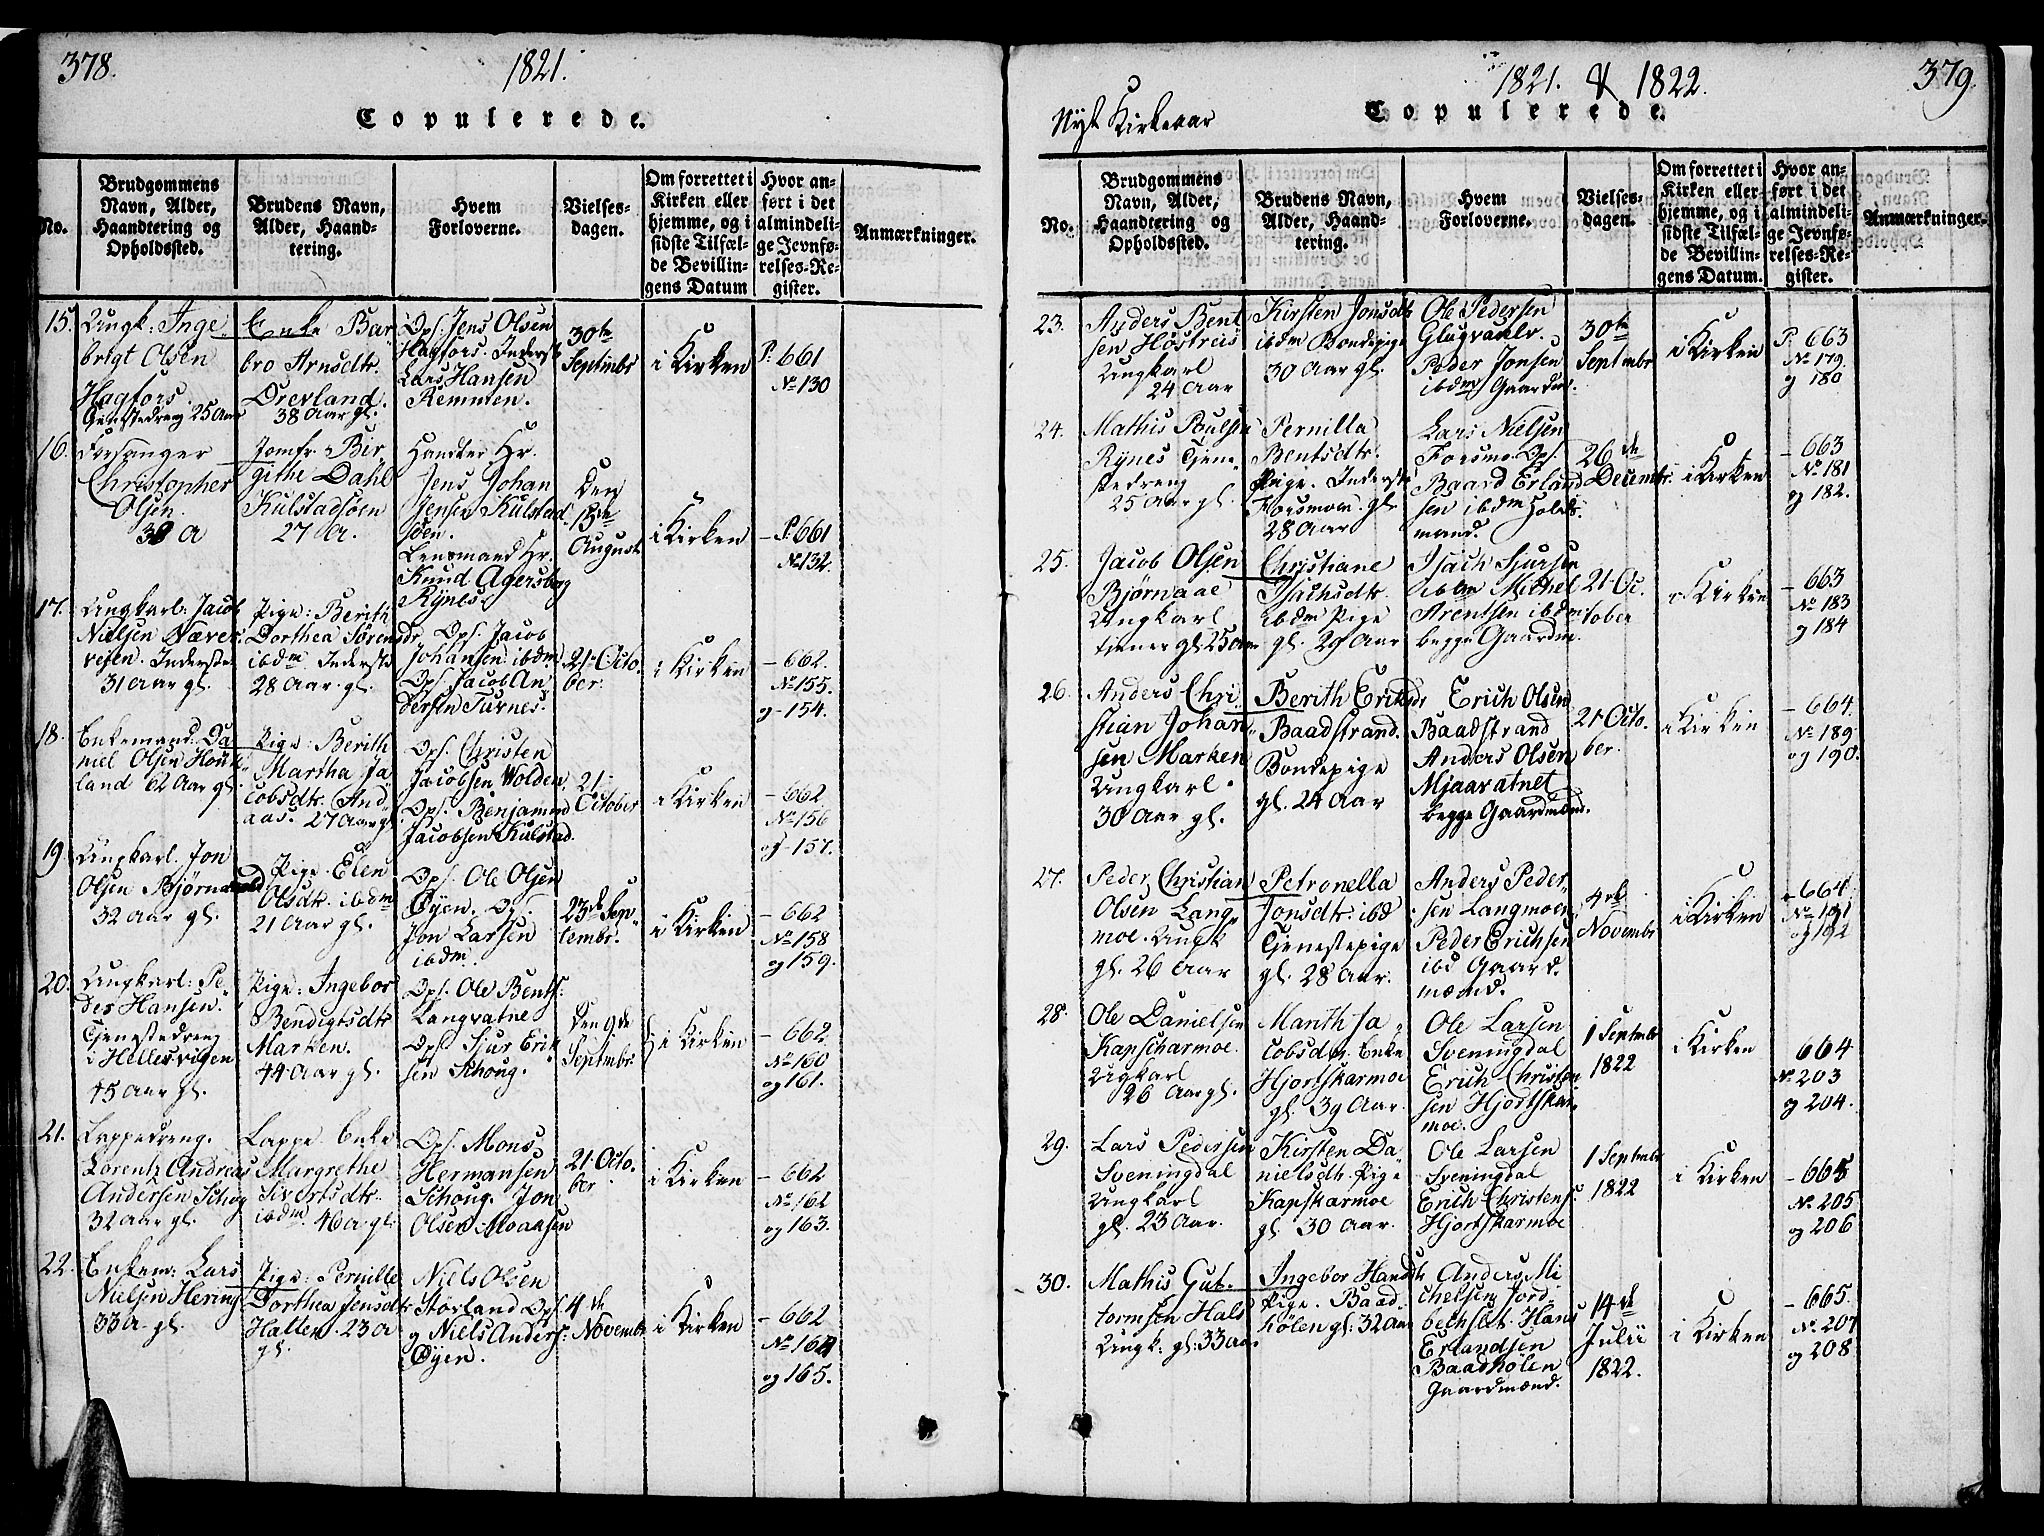 378.
1821.
Copulerede.
No.
Brudgommens Navn, Alder, Haandtering og Opholdssted.
Brudens Navn, Alder, Haandtering.
Hvem Forloverne.
Vielsesdagen.
Om forrettet i Kirken eller hjemme, og i sidste Tilfælde Bevillingens Datum
Hvor anført i det almindelige Jevnførelses-Register.
Anmærkninger.
15.
Ungk: Inge
brigt Olsen
Hagfors
Tjenstedreng 25 Aar
Enke Bar
bro Arnsdtr.
Drevland.
38 Aar gl.
Ops. Jens Olsen
Hagfors. Inderst
Lars Hansen
Remmen.
30te
Septembr
i Kirken
P. 661
No 130
16.
Forsanger
Christopher
Olsen.
30 A
Jomfr. Bir
githe Dahl
Kulstadsöen
27 A.
Handler Hr.
Jens Johan
Jensen Kulstad
söen.
Lensmand Hr.
Knud Agersborg
Rynes.
Den
13de
August
i Kirken
- P. 661
No 132.
17.
Ungkarl: Jacob
Nielsen Næver
vejen. Inderste
31 Aar gl.
Pige: Berith
Dorthea Sørensdr
ibdm Inderste
28 Aar gl.
Ops. Jacob
Johansen ibdm
Ops. Jacob An
dersen Turnes.
21 Octo
ber.
i Kirken
- 662.
No 155.
og 154.
18.
Enkemand: Da
niel Olsen Houk
land 62 Aar gl.
Pige: Berith
Martha Ja
cobsdtr. And
aas. 27 Aar gl
Ops. Christen
Jacobsen Wolden.
Ops. Benjamin
Jacobsen Kulstad.
21
October
i Kirken
- 662
No 156
og 157.
19
Ungkarl. Jon
Olsen Bjørnaa
32 Aar gl.
Pige Elen
Olsdtr. ibdm
21 Aar gl.
Ops. Ole Olsen
Øyen. Op.
Jon Larsen
ibdm.
23de Sep
tembr.
i Kirken
- 662
No 158
og 159.
20.
Ungkarl: Pe
der Hansen.
Tjenstedreng
i Hellesvigen
45 Aar gl.
Pige: Ingebor
Bendigtsdtr
Marken.
44 Aar gl.
Ops. Ole Bents:
Langvatne
Ops Sjur Erik
sen Schoug.
Den 9de
Septmbr.
i Kirken
- 662.
No 160
og 161.
21.
Lappedreng.
Lorentz Andreas
Andersen Schog
32 Aar gl.
Lappe Enke
Margrethe
Sivertsdtr.
ibdm. 46 A. gl.
Ops. Mons
Hermansen
Schoug. Jon
Olsen Moaasen
21 Octo
ber
i Kirken
- 662
No 162
og 163.
22.
Enkem: Lars
Nielsen Hering
33 A. gl.
Pige: Pernille
Dorthea Jensdtr
Halten 23 A
gl.
Niels Olsen
Storland Ops.
og Niels Anders:
Øyen.
4de
Novembr
i Kirken
- 662
No 164
og 165.
379.
1821. & 1822.
Nyt Kirkeaar
Copulerede.
No.
Brudgommens Navn, Alder, Haandtering og Opholdssted.
Brudens Navn, Alder, Haandtering.
Hvem Forloverne.
Vielsesdagen.
Om forrettet i Kirken eller hjemme, og i sidste Tilfælde Bevillingens Datum.
Hvor anført i det almindelige Jevnførelses-Register.
Anmærkninger.
23.
Anders Bent
sen Høstreis
Ungkarl
24 Aar
Kirsten Jonsdtr
ibdm Bondepige
30 Aar gl.
Ole Pedersen
Glugvasler.
Peder Jonsen
ibdm Gaardm.
30te
Septembr
i Kirken
P. 663
No 179
og 180
24.
Mathis Poulsen
Rynes Tjene
stedreng
25 Aar gl.
Pernilla
Bentsdtr.
Pige. Inderst
Forsmoen. gl.
28 Aar
Lars Nielsen
Forsmo Ops.
Baard Erland
sen ibdm Holds
mand.
26de
Decembr.
i Kirken
- 663
No 181
og 182.
25.
Jacob Olsen
Bjørnaae
Ungkarl
tiener gl. 25 Aar
Christiane
Isachsdtr.
ibdm Pige
gl. 29 Aar
Isach Sjursen
ibdm Michel
Arentsen ibdm
begge Gaardm.
21 Oc
tober
i Kirken
- 663
No 183
og 184
26.
Anders Chri
stian Johan
sen Marken
Ungkarl.
30 Aar gl.
Berith Eriksdr
Baadstrand.
Bondepige
gl. 24 Aar
Erich Olsen
Baadstrand
Anders Olsen
Mjaavatnet
begge Gaardmænd.
21 Octo
ber.
i Kirken
- 664.
No 189.
og 190.
27.
Peder Christian
Olsen Lang
moe. Ungk
gl. 26 Aar
Petronella
Jonsdtr. ibd
Tjenestepige
gl. 28 Aar.
Anders Peder
sen Langmoen
Peder Erichsen
ibd Gaard
mænd.
4de
Novembr
i Kirken
- 664.
No 191
og 192
28.
Ole Danielsen
Kapskarmoe.
Ugkarl
26 Aar gl.
Marith Ja
cobsdtr. Enke
Hjortskarmoe
gl. 39 Aar
Ole Larsen
Sveningdal
Erich Christen
sen Hjortskar
moe.
1 Septembr
1822
i Kirken
664
No 203
og 204.
29.
Lars Pedersen
Sveningdal
Ungkarl
gl. 23 Aar.
Kirsten Da
nielsdtr. Pige
Kapskarmoe
gl. 30 Aar.
Ole Larsen
Sveningdal
Erich Christens:
Hjortskarmoe
1 Septmbr
1822
i Kirken
- 665
No 205
og 206
30.
Mathis Gut
tormsen Hals
Ungk: gl. 33 aar.
Ingebor Hansdtr
Pige. Baad
hølen gl: 32 Aar
Anders Mi
chelsen Jord
bechslet. Hans
Erlandsen
Baadhølen
Gaardmænd.
14de
Julii
1822.
i Kirken
- 665.
No 207
og 208